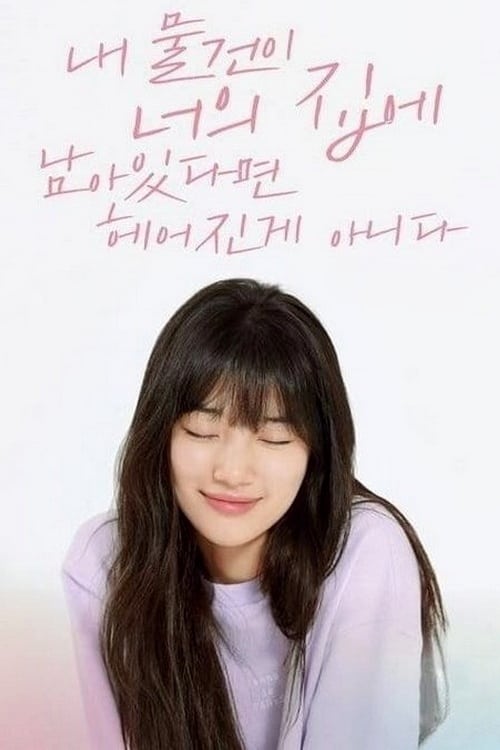 내 물건이
너의 집에
남아있다면
헤어진게 아니다